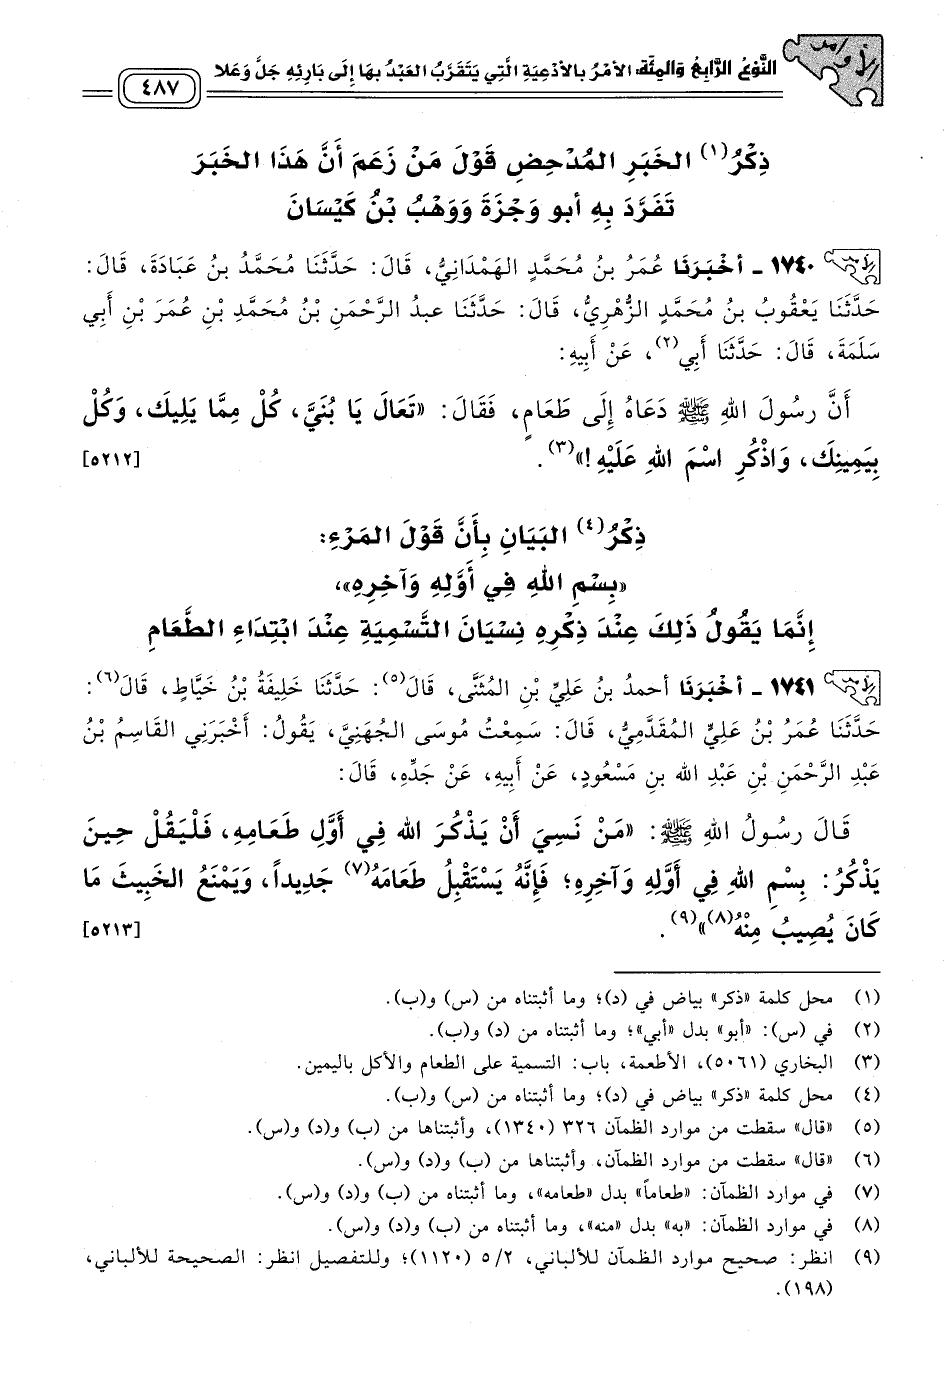 الأوامر
النَّوْعُ الرَّابِعُ وَالمِئَة: الأَمْرُ بِالأَدْعِيَةِ الَّتِي يَتَقَرَّبُ العَبْدُ بِهَا إِلَى بَارِئِهِ جَلَّ وَعَلَا
٤٨٧
ذِكْرُ(١) الخَبَرِ المُدْحِضِ قَوْلَ مَنْ زَعَمَ أَنَّ هَذَا الخَبَرَ
تَفَرَّدَ بِهِ أبو وَجْزَةَ وَوَهْبُ بْنُ كَيْسَانَ
١٧٤٠ - أَخْبَرَنَا عُمَرُ بنُ مُحَمَّدٍ الهَمْدَانِيُّ، قَالَ: حَدَّثَنَا مُحَمَّدُ بنُ عَبَادَةَ، قَالَ:
حَدَّثَنَا يَعْقُوبُ بنُ مُحَمَّدٍ الزُّهْرِيُّ، قَالَ: حَدَّثَنَا عبدُ الرَّحْمَنِ بْنُ مُحَمَّدِ بْنِ عُمَرَ بْنِ أَبِي
سَلَمَةَ، قَالَ: حَدَّثَنَا أَبِي(٢)، عَنْ أَبِيهِ:
أَنَّ رسُولَ اللهِ ﷺ دَعَاهُ إِلَى طَعَامٍ، فَقَالَ: «تَعَالَ يَا بُنَيَّ، كُلْ مِمَّا يَلِيكَ، وَكُلْ
بِيَمِينِكَ، وَاذْكُرِ اسْمَ اللهِ عَلَيْهِ!»(٣). [٥٢١٢]
ذِكْرُ(٤) البَيَانِ بِأَنَّ قَوْلَ المَرْءِ:
«بِسْمِ اللهِ فِي أَوَّلِهِ وَآخِرِهِ»،
إِنَّمَا يَقُولُ ذَلِكَ عِنْدَ ذِكْرِهِ نِسْيَانَ التَّسْمِيَةِ عِنْدَ ابْتِدَاءِ الطَّعَامِ
١٧٤١ - أَخْبَرَنَا أحمدُ بنُ عَلِيِّ بْنِ المُثَنَّى، قَالَ(٥): حَدَّثَنَا خَلِيفَةُ بْنُ خَيَّاطٍ، قَالَ(٦):
حَدَّثَنَا عُمَرُ بْنُ عَلِيٍّ المُقَدَّمِيُّ، قَالَ: سَمِعْتُ مُوسَى الجُهَنِيَّ، يَقُولُ: أَخْبَرَنِي القَاسِمُ بْنُ
عَبْدِ الرَّحْمَنِ بْنِ عَبْدِ الله بنِ مَسْعُودٍ، عَنْ أَبِيهِ، عَنْ جَدِّهِ، قَالَ:
قَالَ رسُولُ اللهِ ﷺ: «مَنْ نَسِيَ أَنْ يَذْكُرَ الله فِي أَوَّلِ طَعَامِهِ، فَلْيَقُلْ حِينَ
يَذْكُرُ: بِسْمِ اللهِ فِي أَوَّلِهِ وَآخِرِهِ؛ فَإِنَّهُ يَسْتَقْبِلُ طَعَامَهُ(٧) جَدِيداً، وَيَمْنَعُ الخَبِيثَ مَا
كَانَ يُصِيبُ مِنْهُ(٨)»(٩). [٥٢١٣]
(١) محل كلمة «ذكر» بياض في (د)؛ وما أثبتناه من (س) و(ب).
(٢) في (س): «أبو» بدل «أبي»؛ وما أثبتناه من (د) و(ب).
(٣) البخاري (٥٠٦١)، الأطعمة، باب: التسمية على الطعام والأكل باليمين.
(٤) محل كلمة «ذكر» بياض في (د)؛ وما أثبتناه من (س) و(ب).
(٥) «قال» سقطت من موارد الظمآن ٣٢٦ (١٣٤٠)، وأثبتناها من (ب) و(د) و(س).
(٦) «قال» سقطت من موارد الظمآن، وأثبتناها من (ب) و(د) و(س).
(٧) في موارد الظمآن: «طعاماً» بدل «طعامه»، وما أثبتناه من (ب) و(د) و(س).
(٨) في موارد الظمآن: «به» بدل «منه»، وما أثبتناه من (ب) و(د) و(س).
(٩) انظر: صحيح موارد الظمآن للألباني، ٥/٢ (١١٢٠)؛ وللتفصيل انظر: الصحيحة للألباني،
(١٩٨).